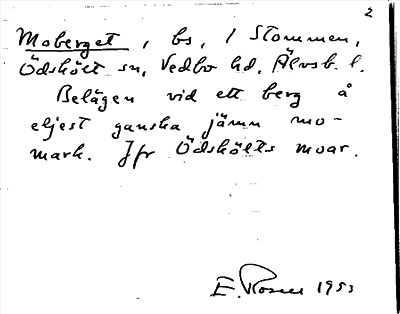 2
Moberget, bs, / Stommen,
Ödskölt sn, Vedbo hd, Älvsb. l.
Belägen vid ett berg å
eljest ganska jämn mo-
mark. Jfr Ödskölts moar.
E. Rosell 1953